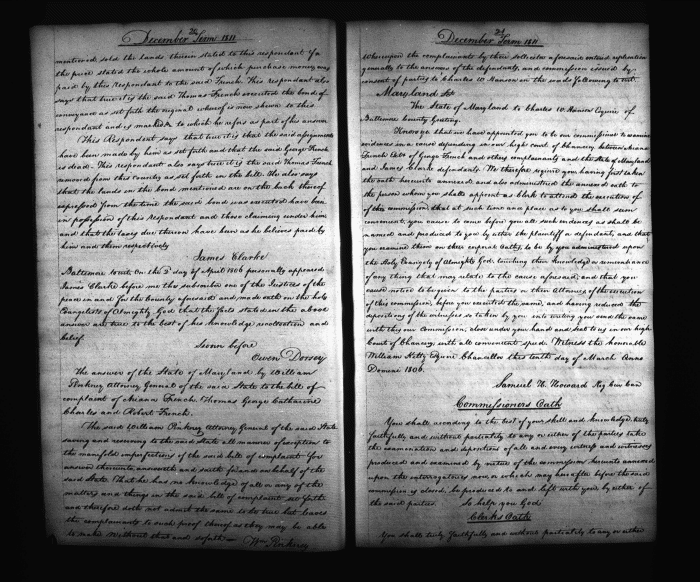 December Term 1811
mentioned sold the lands therein stated to this respondent for
the price stated the whole amount of which purchase money was
paid by this Respondent to the said French. This respondent also
says that true it is the said Thomas French executed the bond of
conveyance as set forth the original whereof is now shewn to this
respondent and is marked to which he refers as part of his answer
This Respondent says that true it is that the said assignments
have been made by him as set forth and that the said George French
is dead. This respondent also says true it is the said Thomas French
removed from this country as set forth in the bill. He also says
that the lands in the bond mentioned are on the back thereof
expressed from the time the said bond was executed have been
in possession of this respondent and those claiming under him
and that the taxes due thereon have been as he believes paid by
him and them respectively
James Clarke
Baltimore to wit On the 3 day of April 1806 personally appeared
James Clarke before me the subscriber one of the Justices of the
peace in and for the County aforesaid and made oath on the holy
Evangelists of Almighty God that the facts stated in the above
answer are true to the best of his knowledge recollection and
belief.
Sworn before
Owen Dorsey
The answer of the State of Maryland by William
Pinkney Attorney General of the said State to the bill of
complaint of Ariana French Thomas George Catharine
Charles and Robert French.
The said William Pinkney Attorney General of the said State
saving and reserving to the said State all manner of exception to
the manifold imperfections of the said bill of complaint for
answer thereunto answereth and saith for and on behalf of the
said State That he has no knowledge of all or any of the
matters and things in the said bill of complaint set forth
and therefore doth not admit the same to be true but leaves
the complainants to such proof thereof as they may be able
to make Without that and so forth
Wm Pinkney
December Term 1811
Whereupon the complainants by their solicitor aforesaid entered replication
generally to the answers of the defendants, and commission issued by
consent of parties to Charles W. Hanson in the words following to wit.
Maryland Sc
The State of Maryland to Charles W. Hanson Esquire of
Baltimore County Greeting.
Know ye that we have appointed you to be our commissioner to examine
evidences in a cause depending in our high court of Chancery between Ariana
French &c of George French and others complainants and the State of Maryland
and James Clarke defendants. We therefore require you having first taken
the oath hereunto annexed and also administered the annexed oath to
the person whom you shall appoint as Clerk to attend the execution of
of this commission, that at such time and place as to you shall seem
convenient, you cause to come before you all such evidences as shall be
named and produced to you by either the plaintiff or defendants, and that
you examine them on their corporal Oaths, to be by you administered upon
the Holy Evangely of Almighty God, touching their knowledge or remembrance
of any thing that may relate to the cause aforesaid, and that you
cause notice to be given to the parties or their Attornies of the execution
of this commission, before you execute the same, and having reduced the
depositions of the witnesses so taken by you into writing you send the same
with this our Commission, close under your hand and seal to us in our high
Court of Chancery with all convenient speed. Witness the honorable
William Kilty Esquire Chancellor this tenth day of March Anno
Domini 1806.
Samuel H. Howard Reg Cur Can
Commissioners Oath
You shall according to the best of your skill and knowledge, truly
faithfully and without partiality to any or either of the parties take
the examination and depositions of all and every witness and witnesses
produced and examined by virtue of the commission hereunto annexed
upon the interrogatories now or which may hereafter before the said
commission is closed, be produced to and left with you by either of
the said parties. So help you God
Clerks Oath
You shall truly faithfully and without partiality to any or either